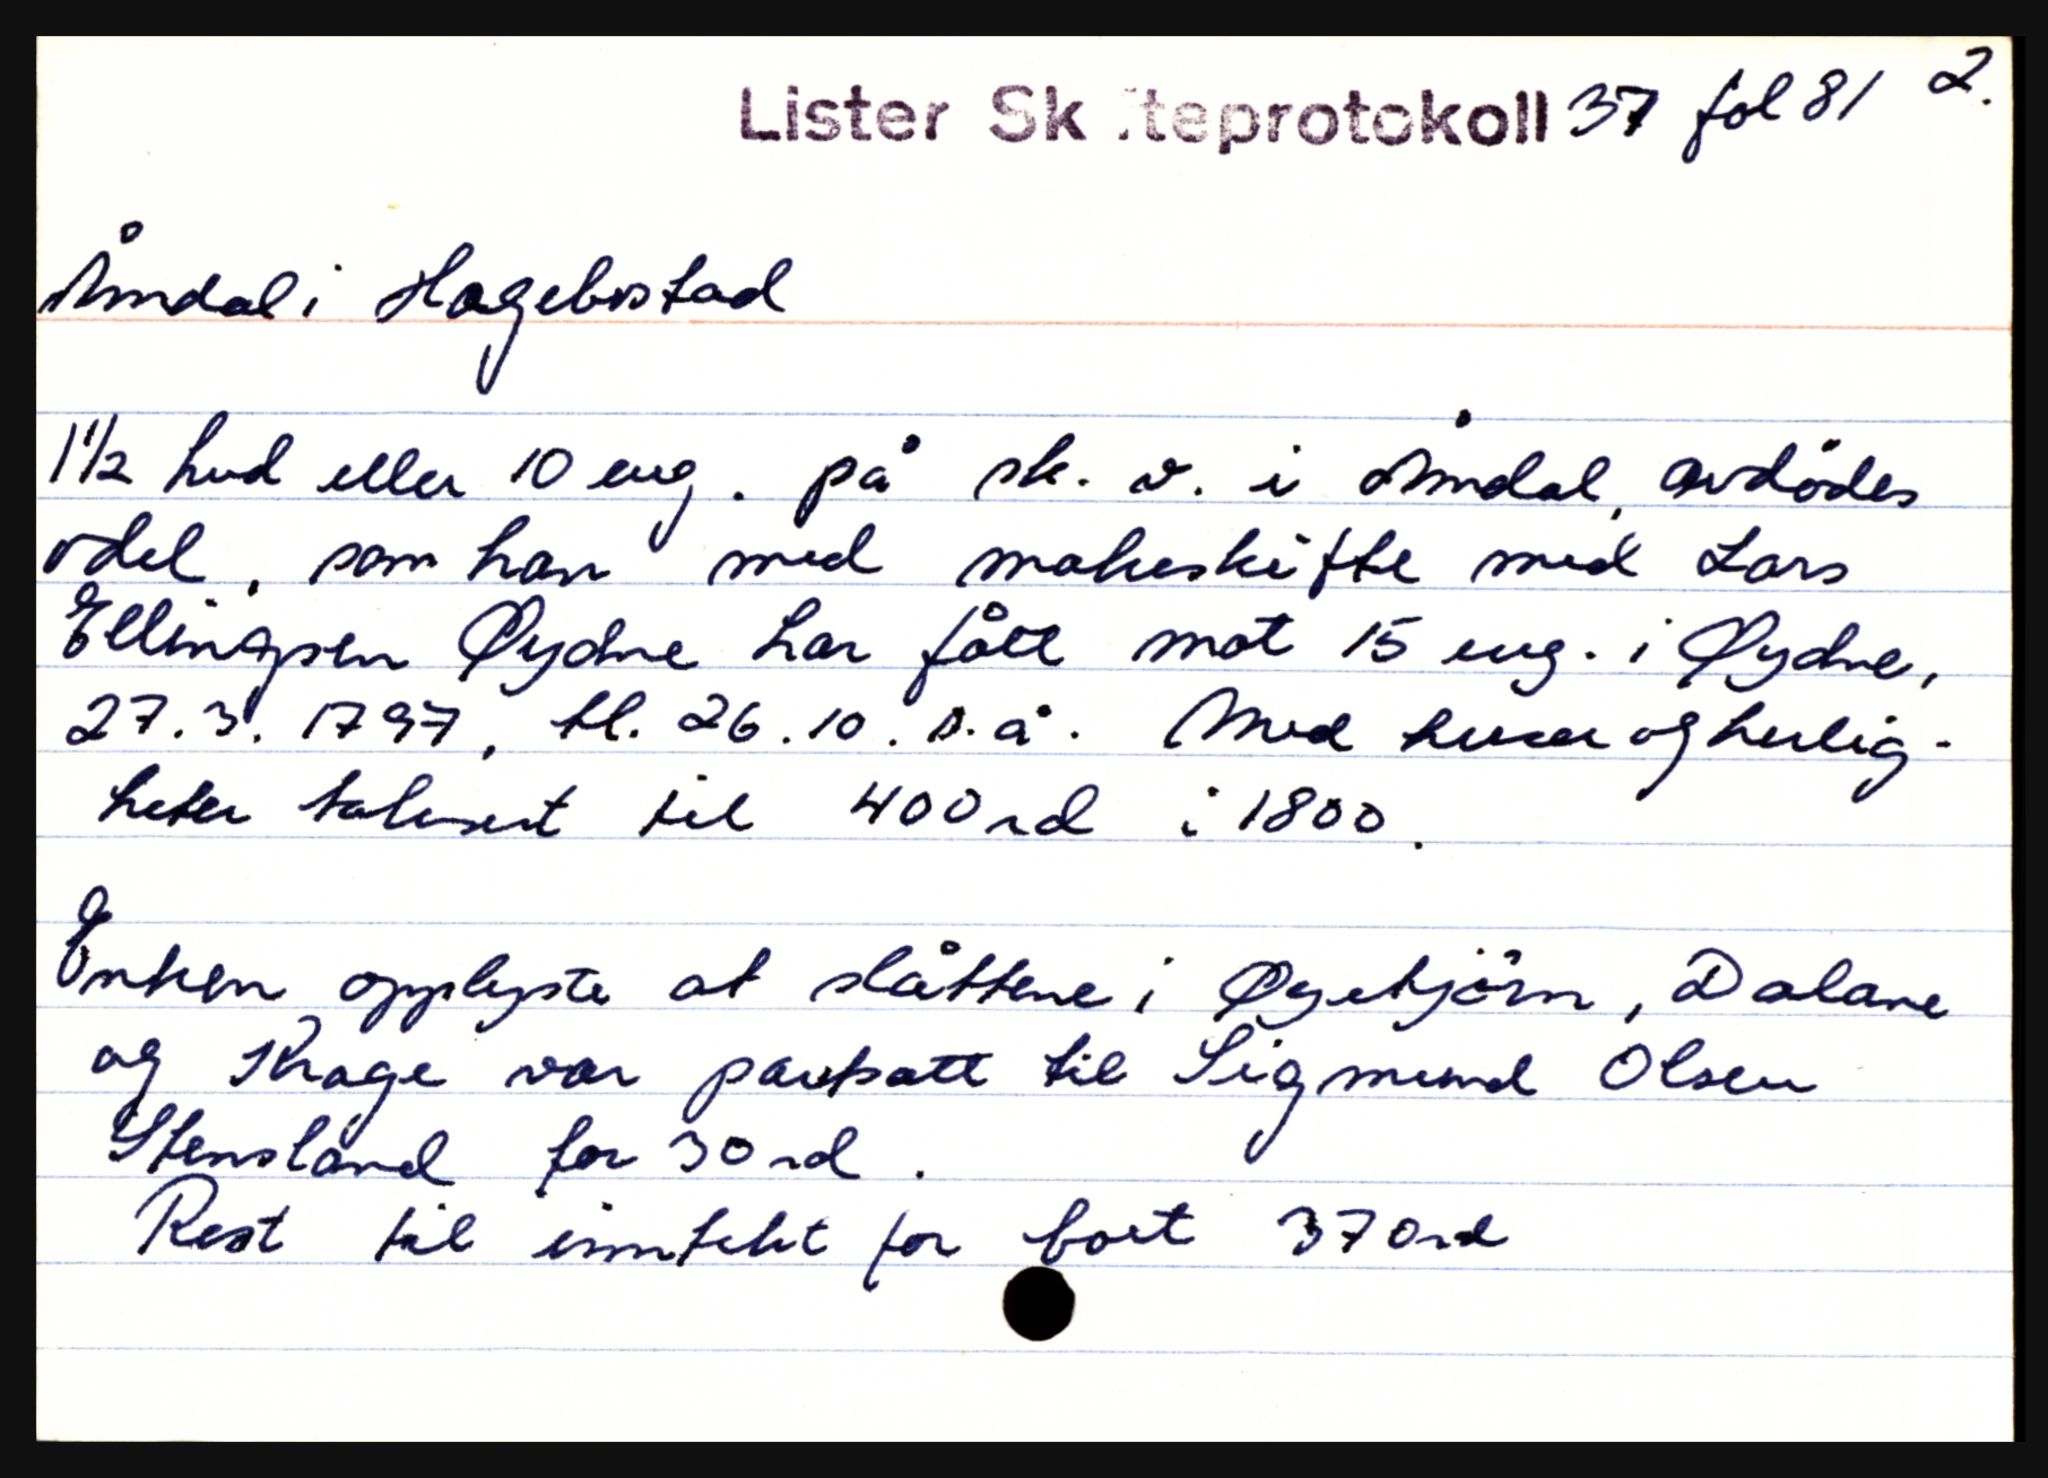 Lister Sk iteprotokoll 37 fol 81 2.
Åmdal i Hægebostad
1 1/2 hud eller 10 eng. på sk. v. i Åmdal, avdödes
odel, som han med makeskifte med Lars
Ellingsen Øydne har fått mot 15 eng. i Øydne,
27.3. 1797, tl. 26.10. s.å. Med huse og herlig-
heter taksert til 400 rd i 1800.
Enken opplyste at slåttene i Øyetjörn, Dalane
og Krage var pantsatt til Sigmund Olsen
Stensland for 30 rd.
Rest til inntekt for boet 370 rd